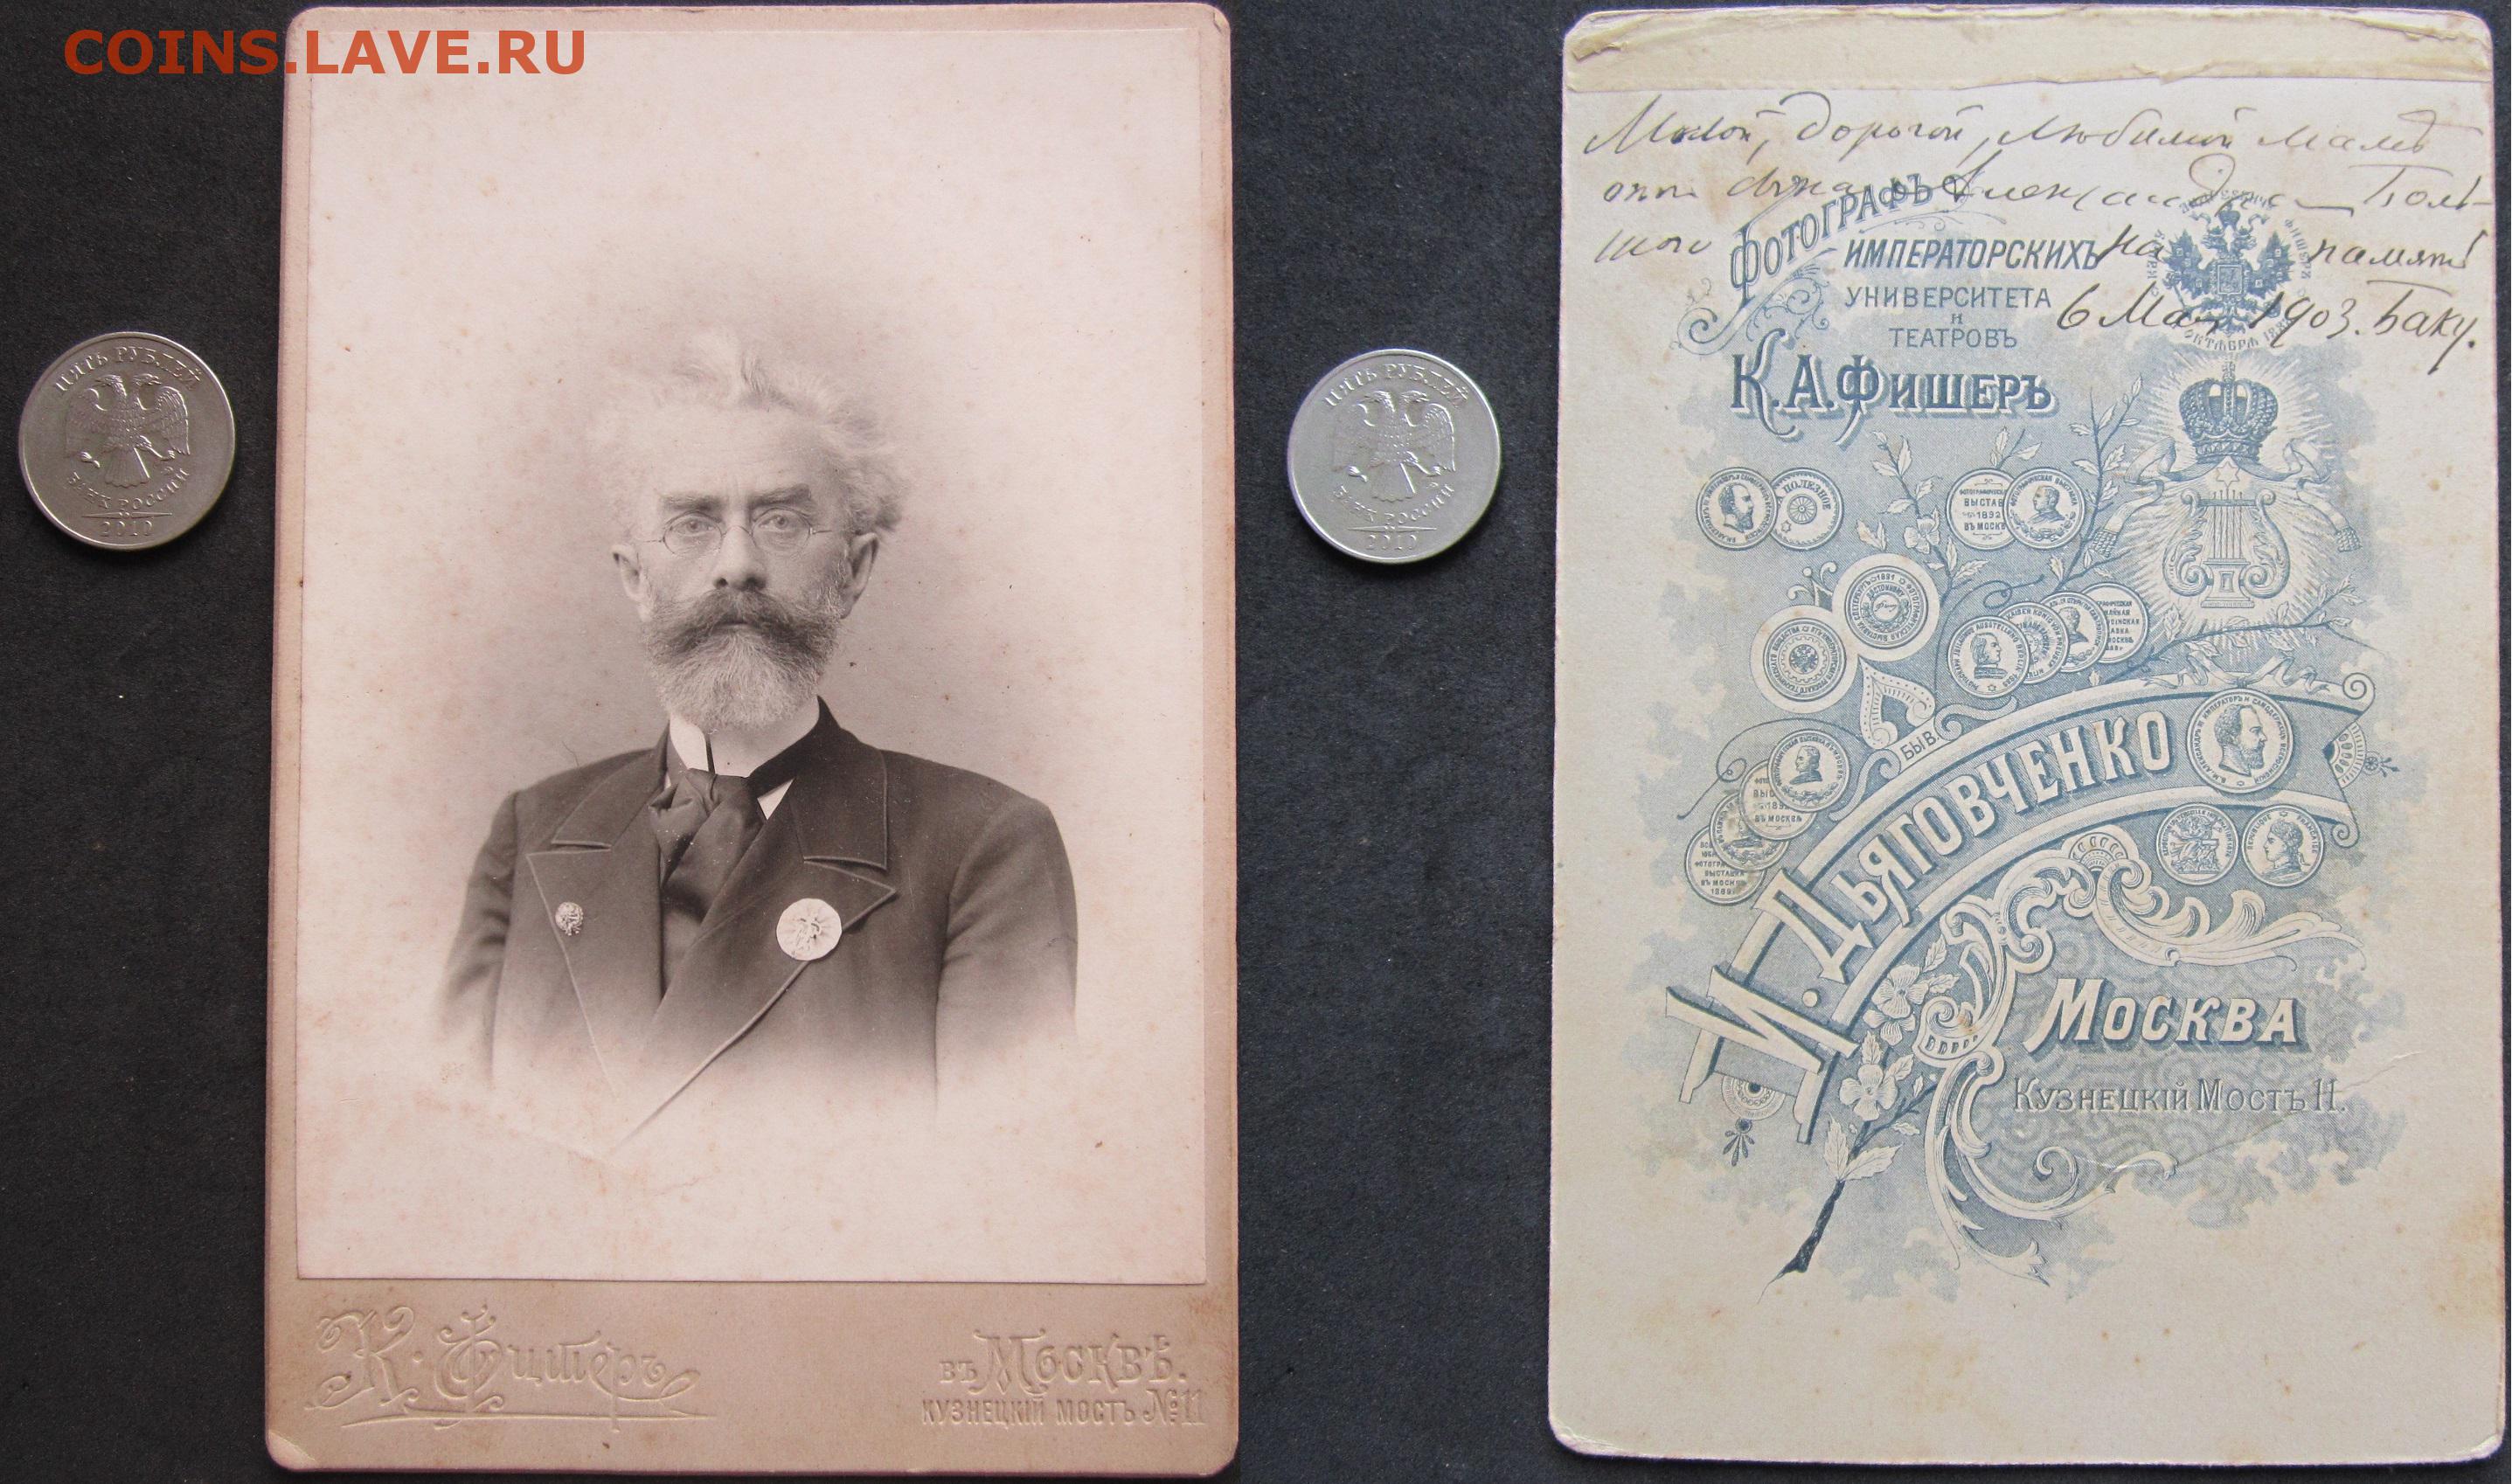 COINS.LAVE.RU
ПЯТЬ РУБЛЕЙ
БАНК РОССИИ
2010
К. Фишеръ
въ Москвѣ.
Кузнецкій мостъ № 11
ПЯТЬ РУБЛЕЙ
БАНК РОССИИ
2010
Милой, дорогой, любимой мамѣ
отъ сына Александра Боль-
шого на память
6 Мая 1903. Баку.
Фотографъ
Императорскихъ
Университета
и
Театровъ
К.А.Фишеръ
ПОЛЕЗНОЕ
ВЫСТАВ
1892
ВЪ МОСКВ
БЫВ.
И. Дьяговченко
ВЫСТАВКА
ВЪ МОСКВ
Москва
Кузнецкій Мостъ 11.